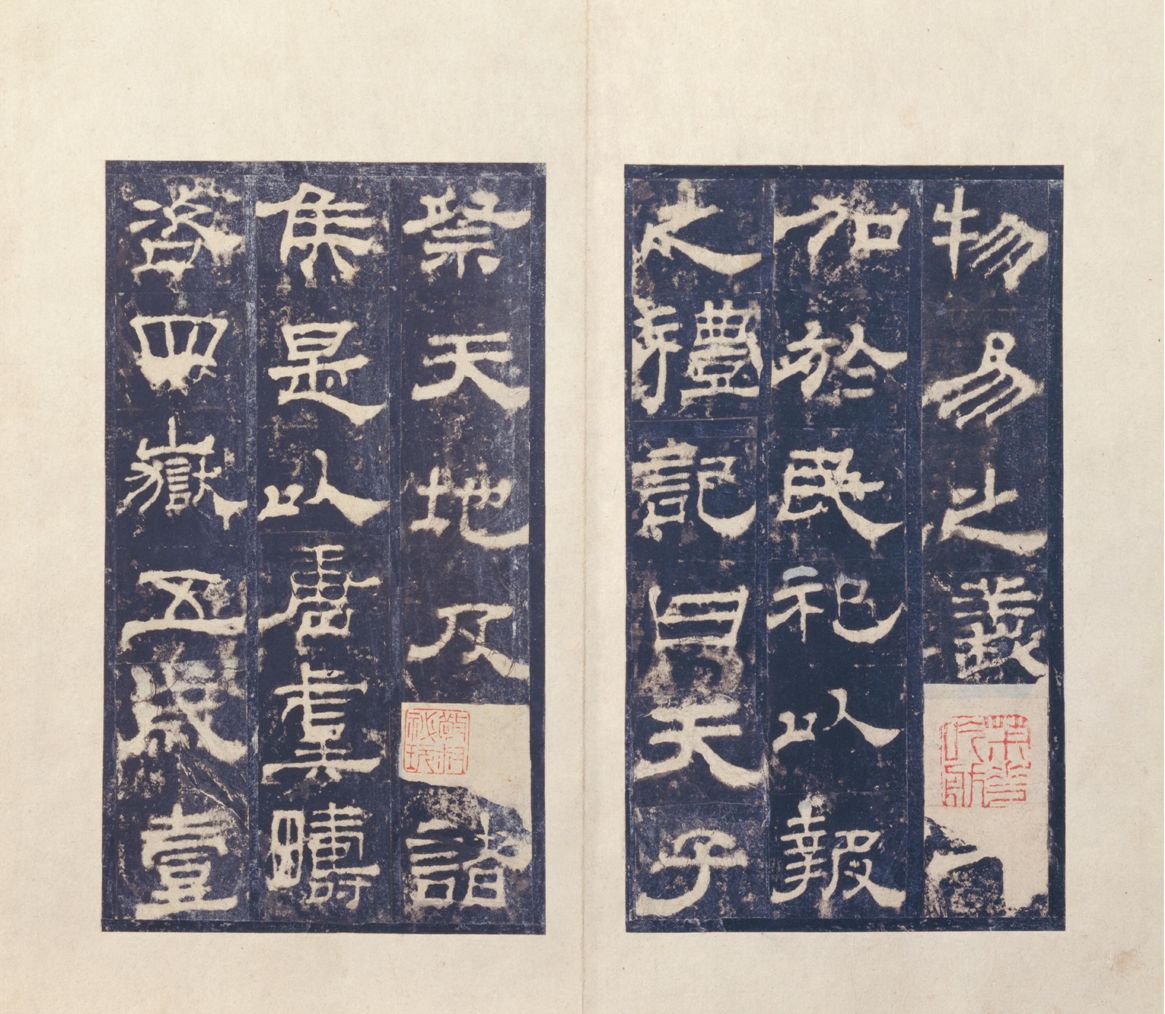 物易之義
加於民祀以報
之禮記曰天子
祭天地及諸
矦是以唐虞疇
咨四嶽五歲壹